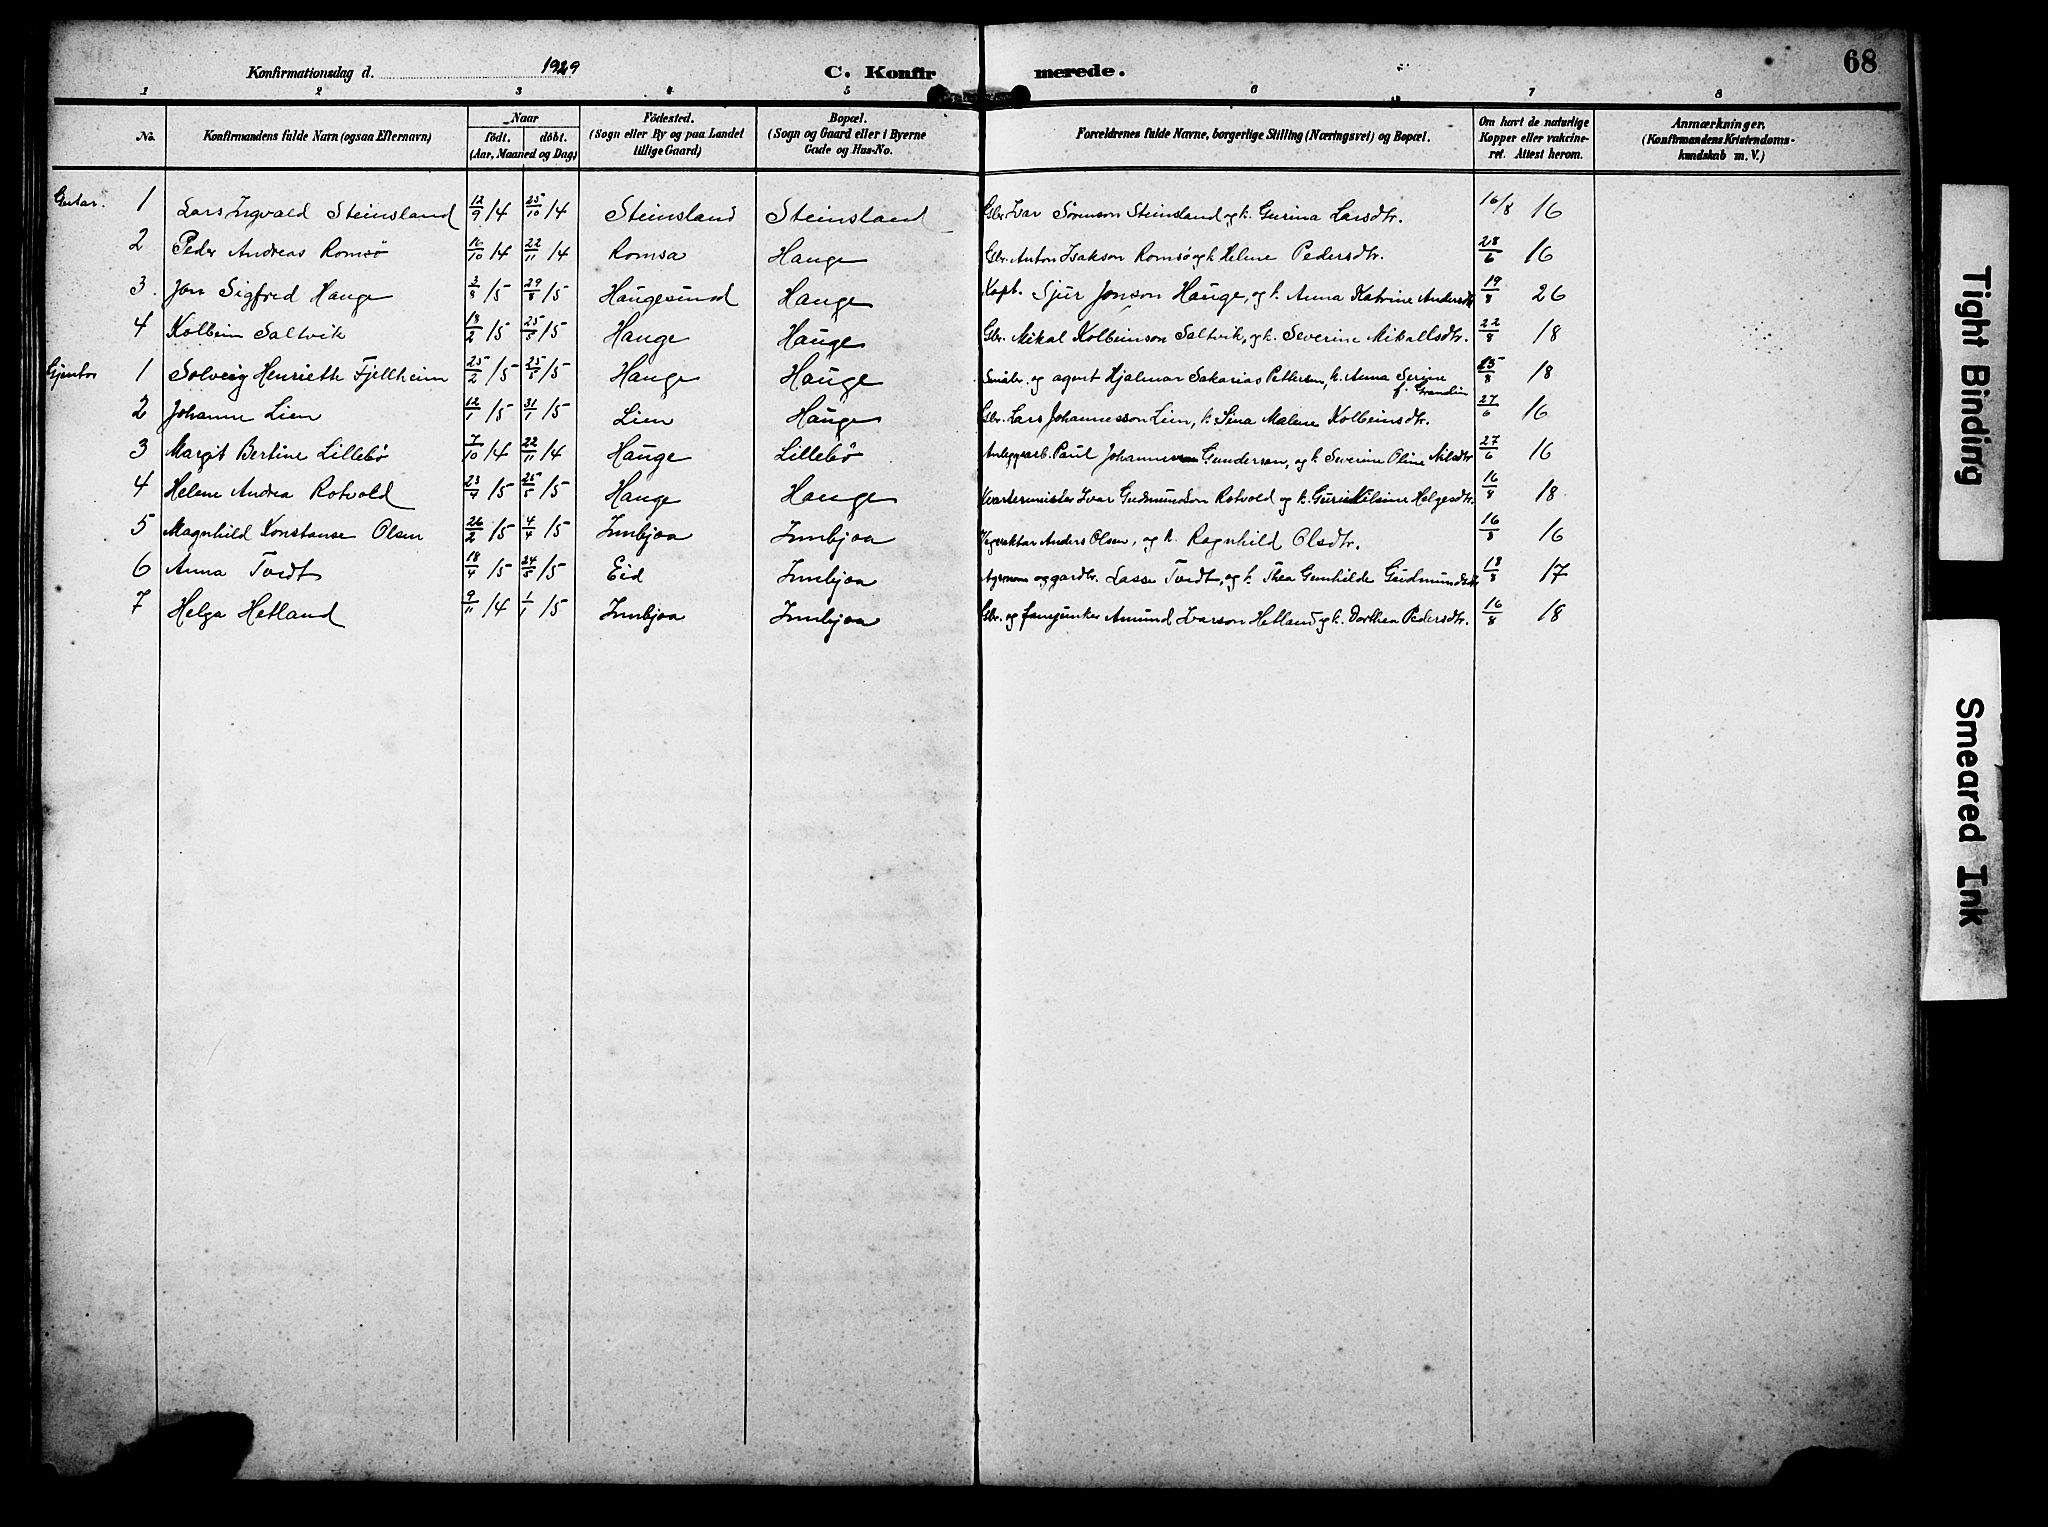 68
Konfirmationsdag d. 1929 C. Konfir merede.
1 2 3 4 5 6 7 8
No. Konfirmandens fulde Navn (ogsaa Efternavn) Naar født. døbt. (Aar, Maaned og Dag) Födested. (Sogn eller By og paa Landet tillige Gaard) Bopæl. (Sogn og Gaard eller i Byerne Gade og Hus-No. Forældrenes fulde Navne, borgerlige Stilling (Næringsvei) og Bopæl. Om havt de naturlige Kopper eller vakcineret. Attest herom. Anmærkninger. (Konfirmandens Kristendomskundskab m. V.)
Gutar. 1 Lars Ingvald Steinsland 12/9 14 25/10 14 Steinsland Steinsland Gbr. Ivar Sørenson Steinsland og k. Gurina Larsdtr. 16/8 16
2 Peder Andreas Romsø 10/10 14 22/11 14 Romsa Hauge Gbr. Anton Isakson Romsø og k. Helene Pedersdtr. 28/6 16
3. Jon Sigfred Hauge 3/8 15 29/8 15 Haugesund Hauge Kapt. Sjur Jonson Hauge, og k. Anna Katrine Andersdtr 19/8 26
4 Kolbein Saltvik 18/2 15 25/5 15 Hauge Hauge Gbr. Mikal Kolbeinson Saltvik, og k. Severine Mikalsdtr. 22/8 18
Gjentor 1 Solveig Henriette Fjellheim 25/2 15 25/5 15 Hauge Hauge Småbr. og agent Hjalmar Sakarias Pettersen, k. Anna Serine f. Grandin 15/8 18
2 Johanne Lien 12/1 15 31/1 15 Lien Hauge Gbr. Lars Johannesson Lien, k. Sina Malene Kolbeinsdtr. 27/6 16
3 Margit Bertine Lillebø 7/10 14 22/11 14 Hauge Lillebø Anleggsarb. Paul Johannes Gunderson, og k. Severine Oline Nilsdtr 27/6 16
4 Helene Andrea Rotvold 23/4 15 25/5 15 Hauge Hauge Kvartermeister Ivar Gudmundson Rotvold og k. Helgesdtr. 16/8 18
5 Magnhild Konstanse Olsen 26/2 15 4/4 15 Innbjoa Innbjoa Vegvaktar Anders Olsen, og k. Ragnhild Olsdtr. 16/8 16
6 Anna Tvedt 18/4 15 24/5 15 Eid Innbjoa Agronom og gardbr. Lasse Tvedt, og k. Thea Gunhilde Gudmundsdtr 18/8 17
7 Helga Hetland 9/11 14 1/1 15 Innbjoa Innbjoa Gbr. og fanejunker Amund Ivarson Hetland og k. Dorthea Pedersdtr. 16/8 18
Tight Binding
Smeared Ink